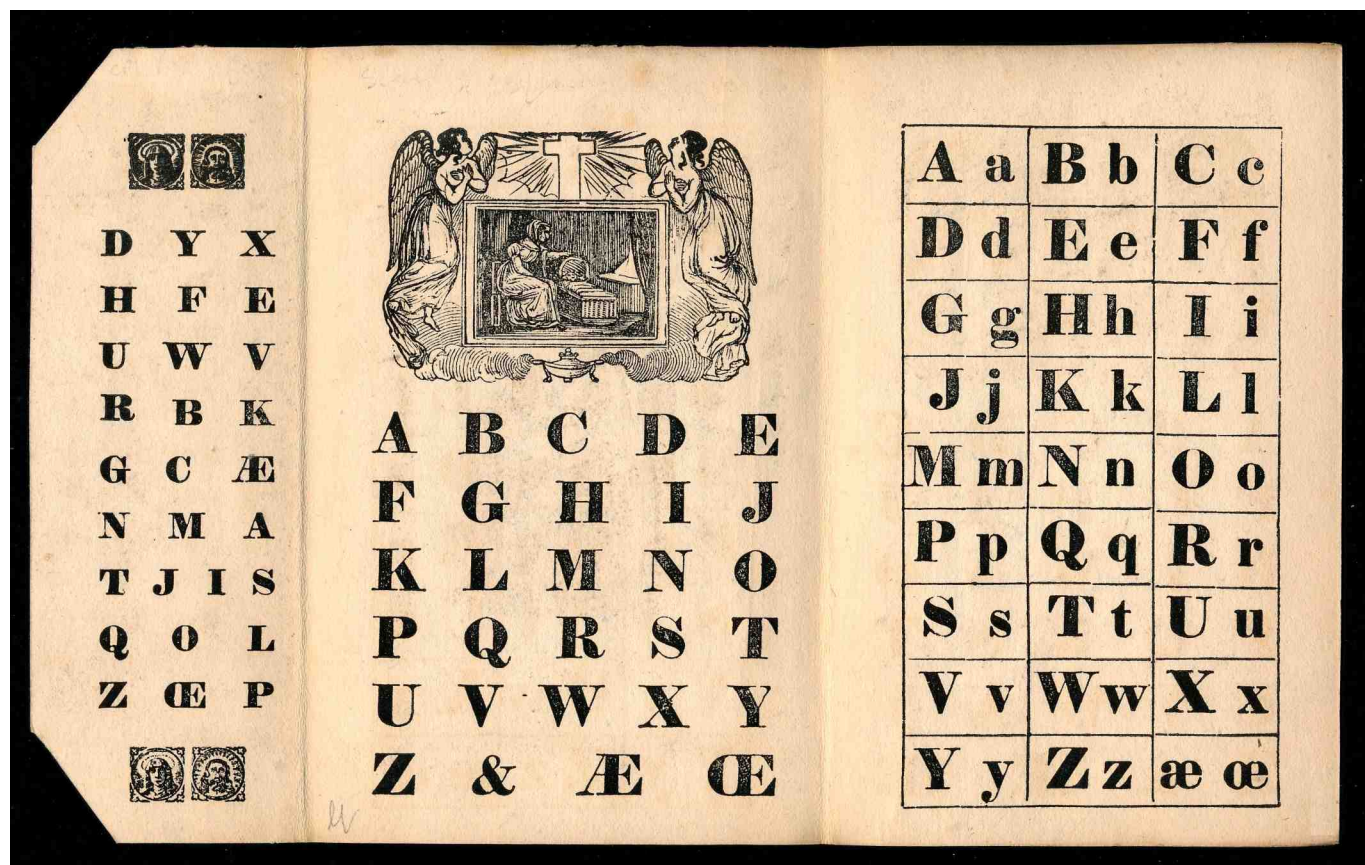 D Y X
H F E
U W V
R B K
G C Æ
N M A
T J I S
Q O L
Z Œ P
A B C D E
F G H I J
K L M N O
P Q R S T
U V W X Y
Z & Æ Œ
A a B b C c
D d E e F f
G g H h I i
J j K k L l
M m N n O o
P p Q q R r
S s T t U u
V v W w X x
Y y Z z æ œ